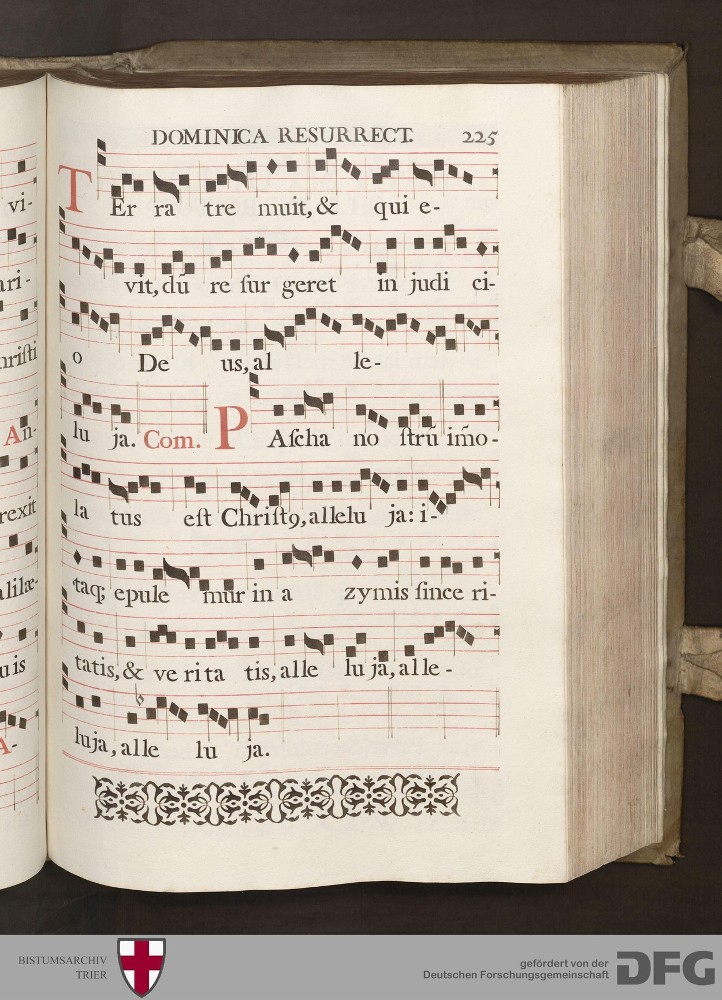 DOMINICA RESURRECT. 225
TEr ra tre muit, & qui e-
vit, dū re ſur geret in judi ci-
o De us, al le-
lu ja. Com. PAſcha no ſtrū im̄o-
la tus eſt Chriſtꝰ, allelu ja: i-
taq; epule mur in a zymis ſince ri-
tatis, & ve ri ta tis, alle lu ja, alle-
luja, alle lu ja.
vi-
ari-
hriſti
An-
rexit
alilæ-
uis
A-
BISTUMSARCHIV
TRIER
gefördert von der
Deutschen Forschungsgemeinschaft
DFG